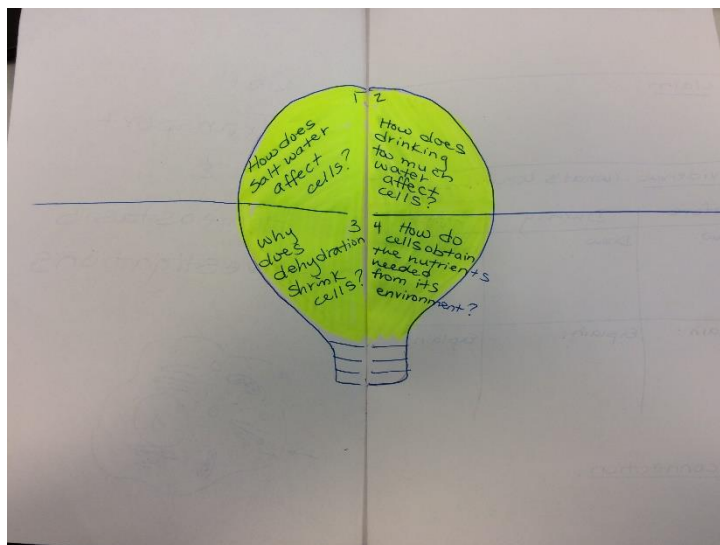 1
How does
salt water
affect
cells?
2
How does
drinking
too much
water
affect
cells?
3
why
does
dehydration
shrink
cells?
4 How do
cells obtain
the nutrients
needed
from its
environment?